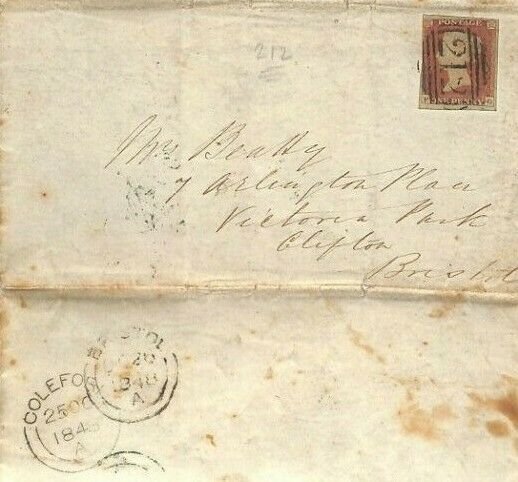 212
POSTAGE
212
ONE PENNY
Mrs Beatty
7 Arlington Place
Victoria Park
Clifton
Bristol
BRISTOL
26
1848
A
COLEFO
25 OC
184
A